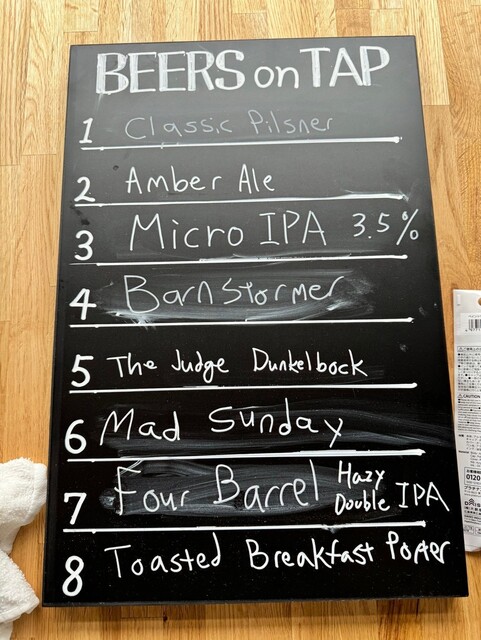 BEERS on TAP
1 Classic Pilsner
2 Amber Ale
3 Micro IPA 3.5%
4 Barnstormer
5 The Judge Dunkelbock
6 Mad Sunday
7 Four Barrel Hazy Double IPA
8 Toasted Breakfast Porter
CAUTION
0120